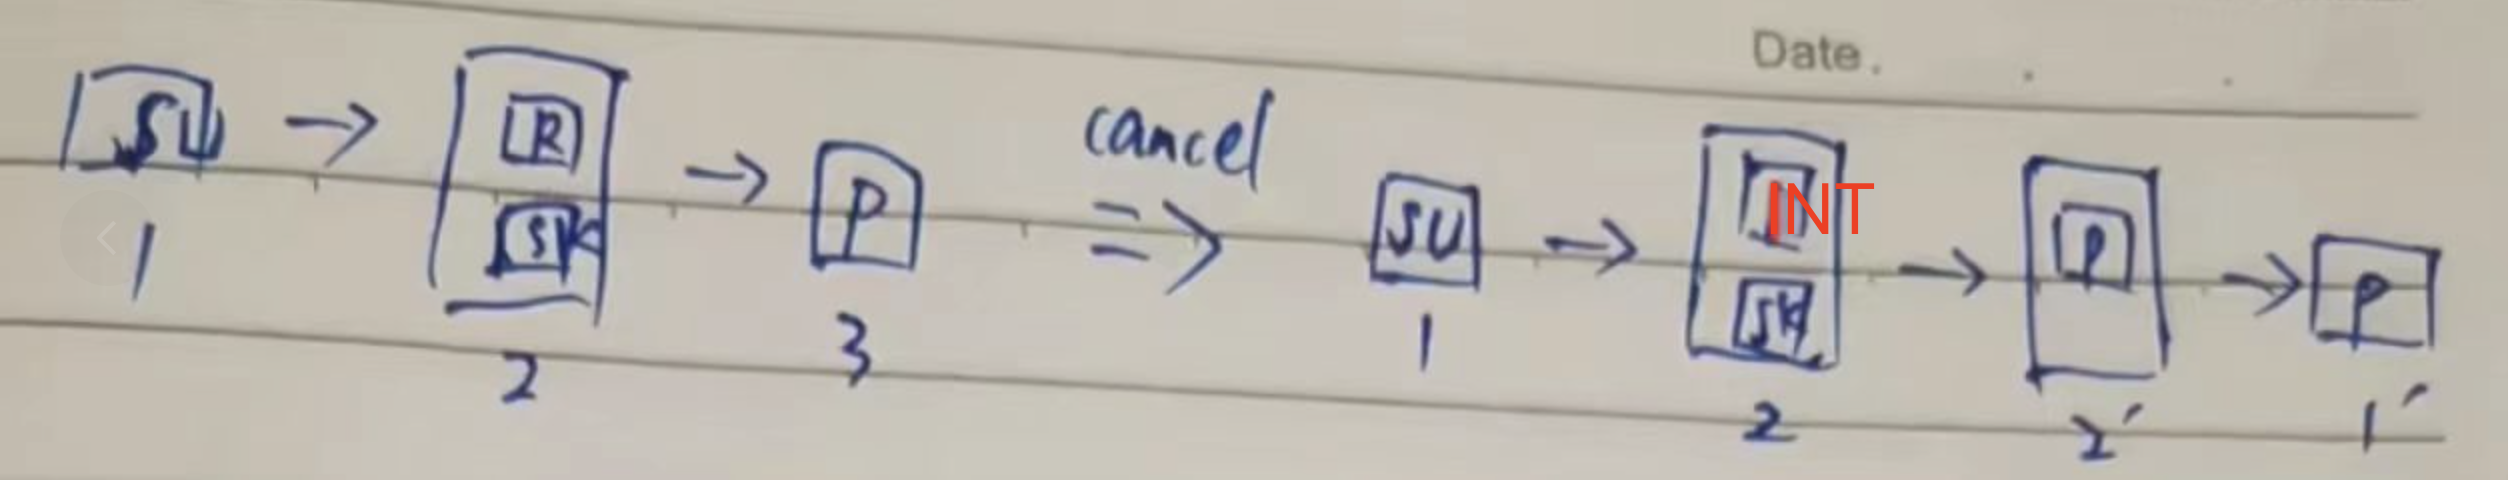 Date.
SU → R SK → P cancel ⇒ SU → INT SK → P → P
1 2 3 1 2 2' 1'